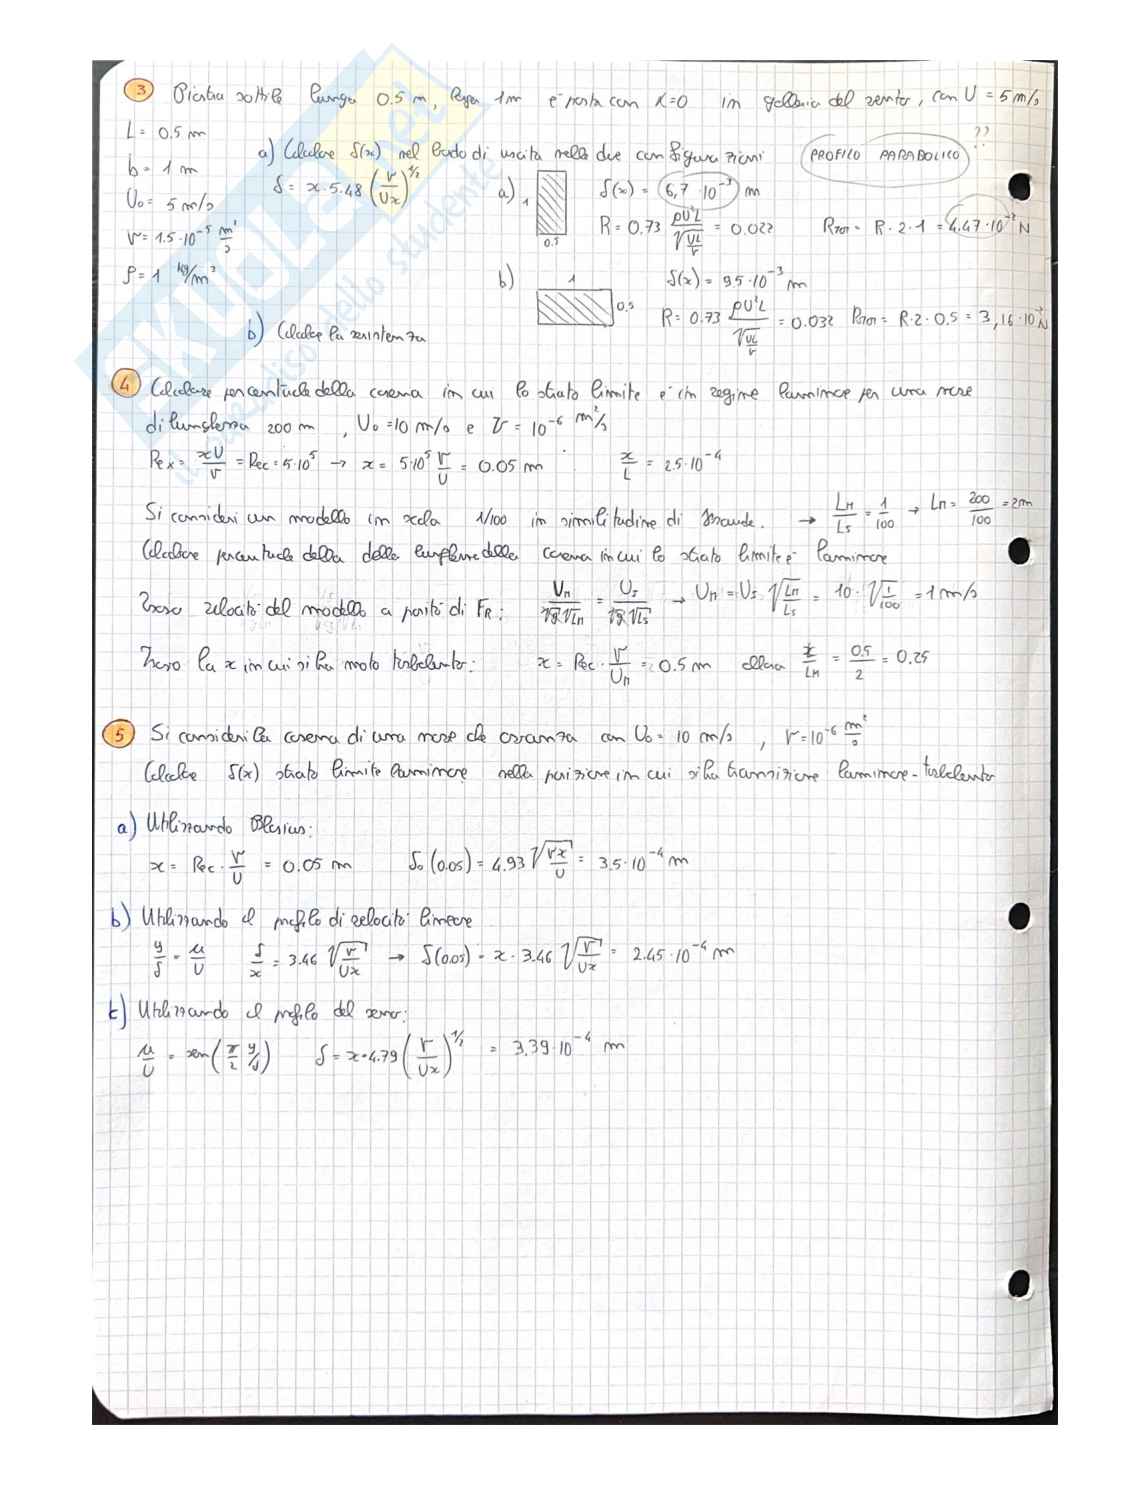 3 Piastra sottile lunga 0.5 m, larga 1m è posta con α=0 in galleria del vento, con U = 5 m/s
L = 0.5 m
a) Calcolare δ(x) nel bordo di uscita nelle due configurazioni PROFILO PARABOLICO ??
b = 1 m
δ = x·5.48 (ν/Ux)^1/2 a) 1 0.5 δ(x) = 6,7·10^-3 m
U₀ = 5 m/s
R = 0.73 ρU²L/√(UL/ν) = 0.022 RTOT = R·2·1 = 4.47·10^-2 N
ν = 1.5·10^-5 m²/s
ρ = 1 kg/m³
b) 1 0.5 δ(x) = 9.5·10^-3 m
R = 0.73 ρU²L/√(UL/ν) = 0.032 RTOT = R·2·0.5 = 3,16·10^-2 N
b) Calcolare la resistenza
4 Calcolare percentuale della carena in cui lo strato limite è in regime laminare per una nave
di lunghezza 200 m, U₀ = 10 m/s e ν = 10^-6 m²/s
Rex = xU/ν = Rec = 5·10^5 → x = 5·10^5 ν/U = 0.05 m x/L = 2.5·10^-4
Si consideri un modello in scala 1/100 in similitudine di Froude. → Lm/Ls = 1/100 → Lm = 200/100 = 2m
Calcolare percentuale della della lunghezza della carena in cui lo strato limite è laminare
Trovo velocità del modello a parità di FR: Um/√g√Lm = Us/√g√Ls → Um = Us √(Lm/Ls) = 10·√(1/100) = 1 m/s
Trovo la x in cui si ha moto turbolento: x = Rec·ν/Um = 0.5 m allora x/Lm = 0.5/2 = 0.25
5 Si consideri la carena di una nave che avanza con U₀ = 10 m/s, ν = 10^-6 m²/s
Calcolare δ(x) strato limite laminare nella posizione in cui si ha transizione laminare-turbolento
a) Utilizzando Blasius:
x = Rec·ν/U = 0.05 m δ₀(0.05) = 4.93 √(νx/U) = 3.5·10^-4 m
b) Utilizzando il profilo di velocità lineare
y/δ = u/U δ/x = 3.46 √(ν/Ux) → δ(0.05) = x·3.46 √(ν/Ux) = 2.45·10^-4 m
c) Utilizzando il profilo del seno:
u/U = sen(π/2 y/δ) δ = x·4.79 (ν/Ux)^1/2 = 3.39·10^-4 m
SKUOLA.net
il paradiso dello studente